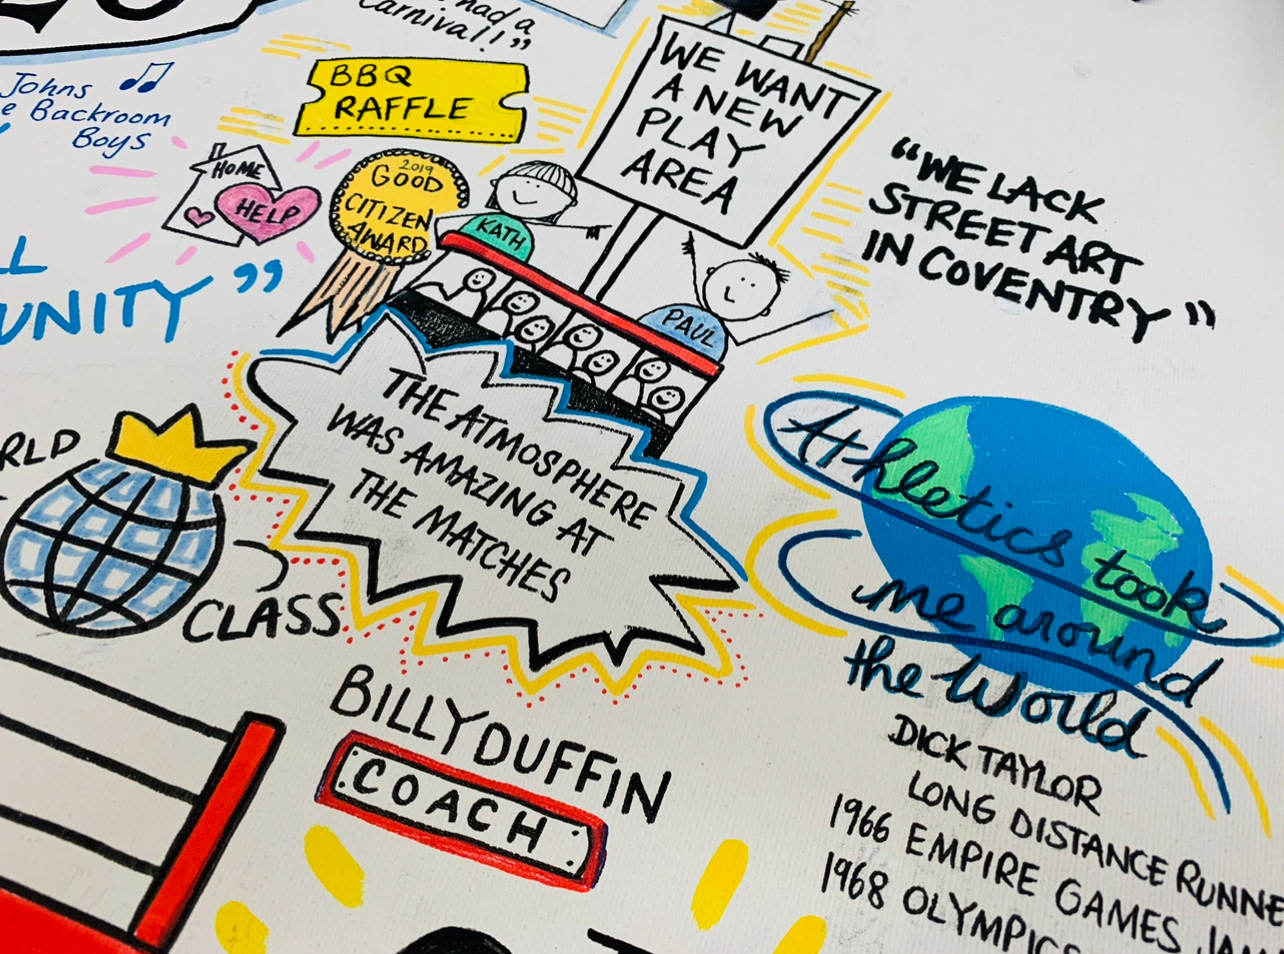 had a
Carnival!”
Johns
Backroom
Boys
BBQ
RAFFLE
WE WANT
A NEW
PLAY
AREA
“WE LACK
STREET ART
IN COVENTRY”
HOME
HELP
2019
GOOD
CITIZEN
AWARD
KATH
PAUL
UNITY”
THE ATMOSPHERE
WAS AMAZING AT
THE MATCHES
CLASS
Athletics took
me around
the World
DICK TAYLOR
LONG DISTANCE
1966 EMPIRE GAMES
1968 OLYMPICS
BILLY DUFFIN
COACH